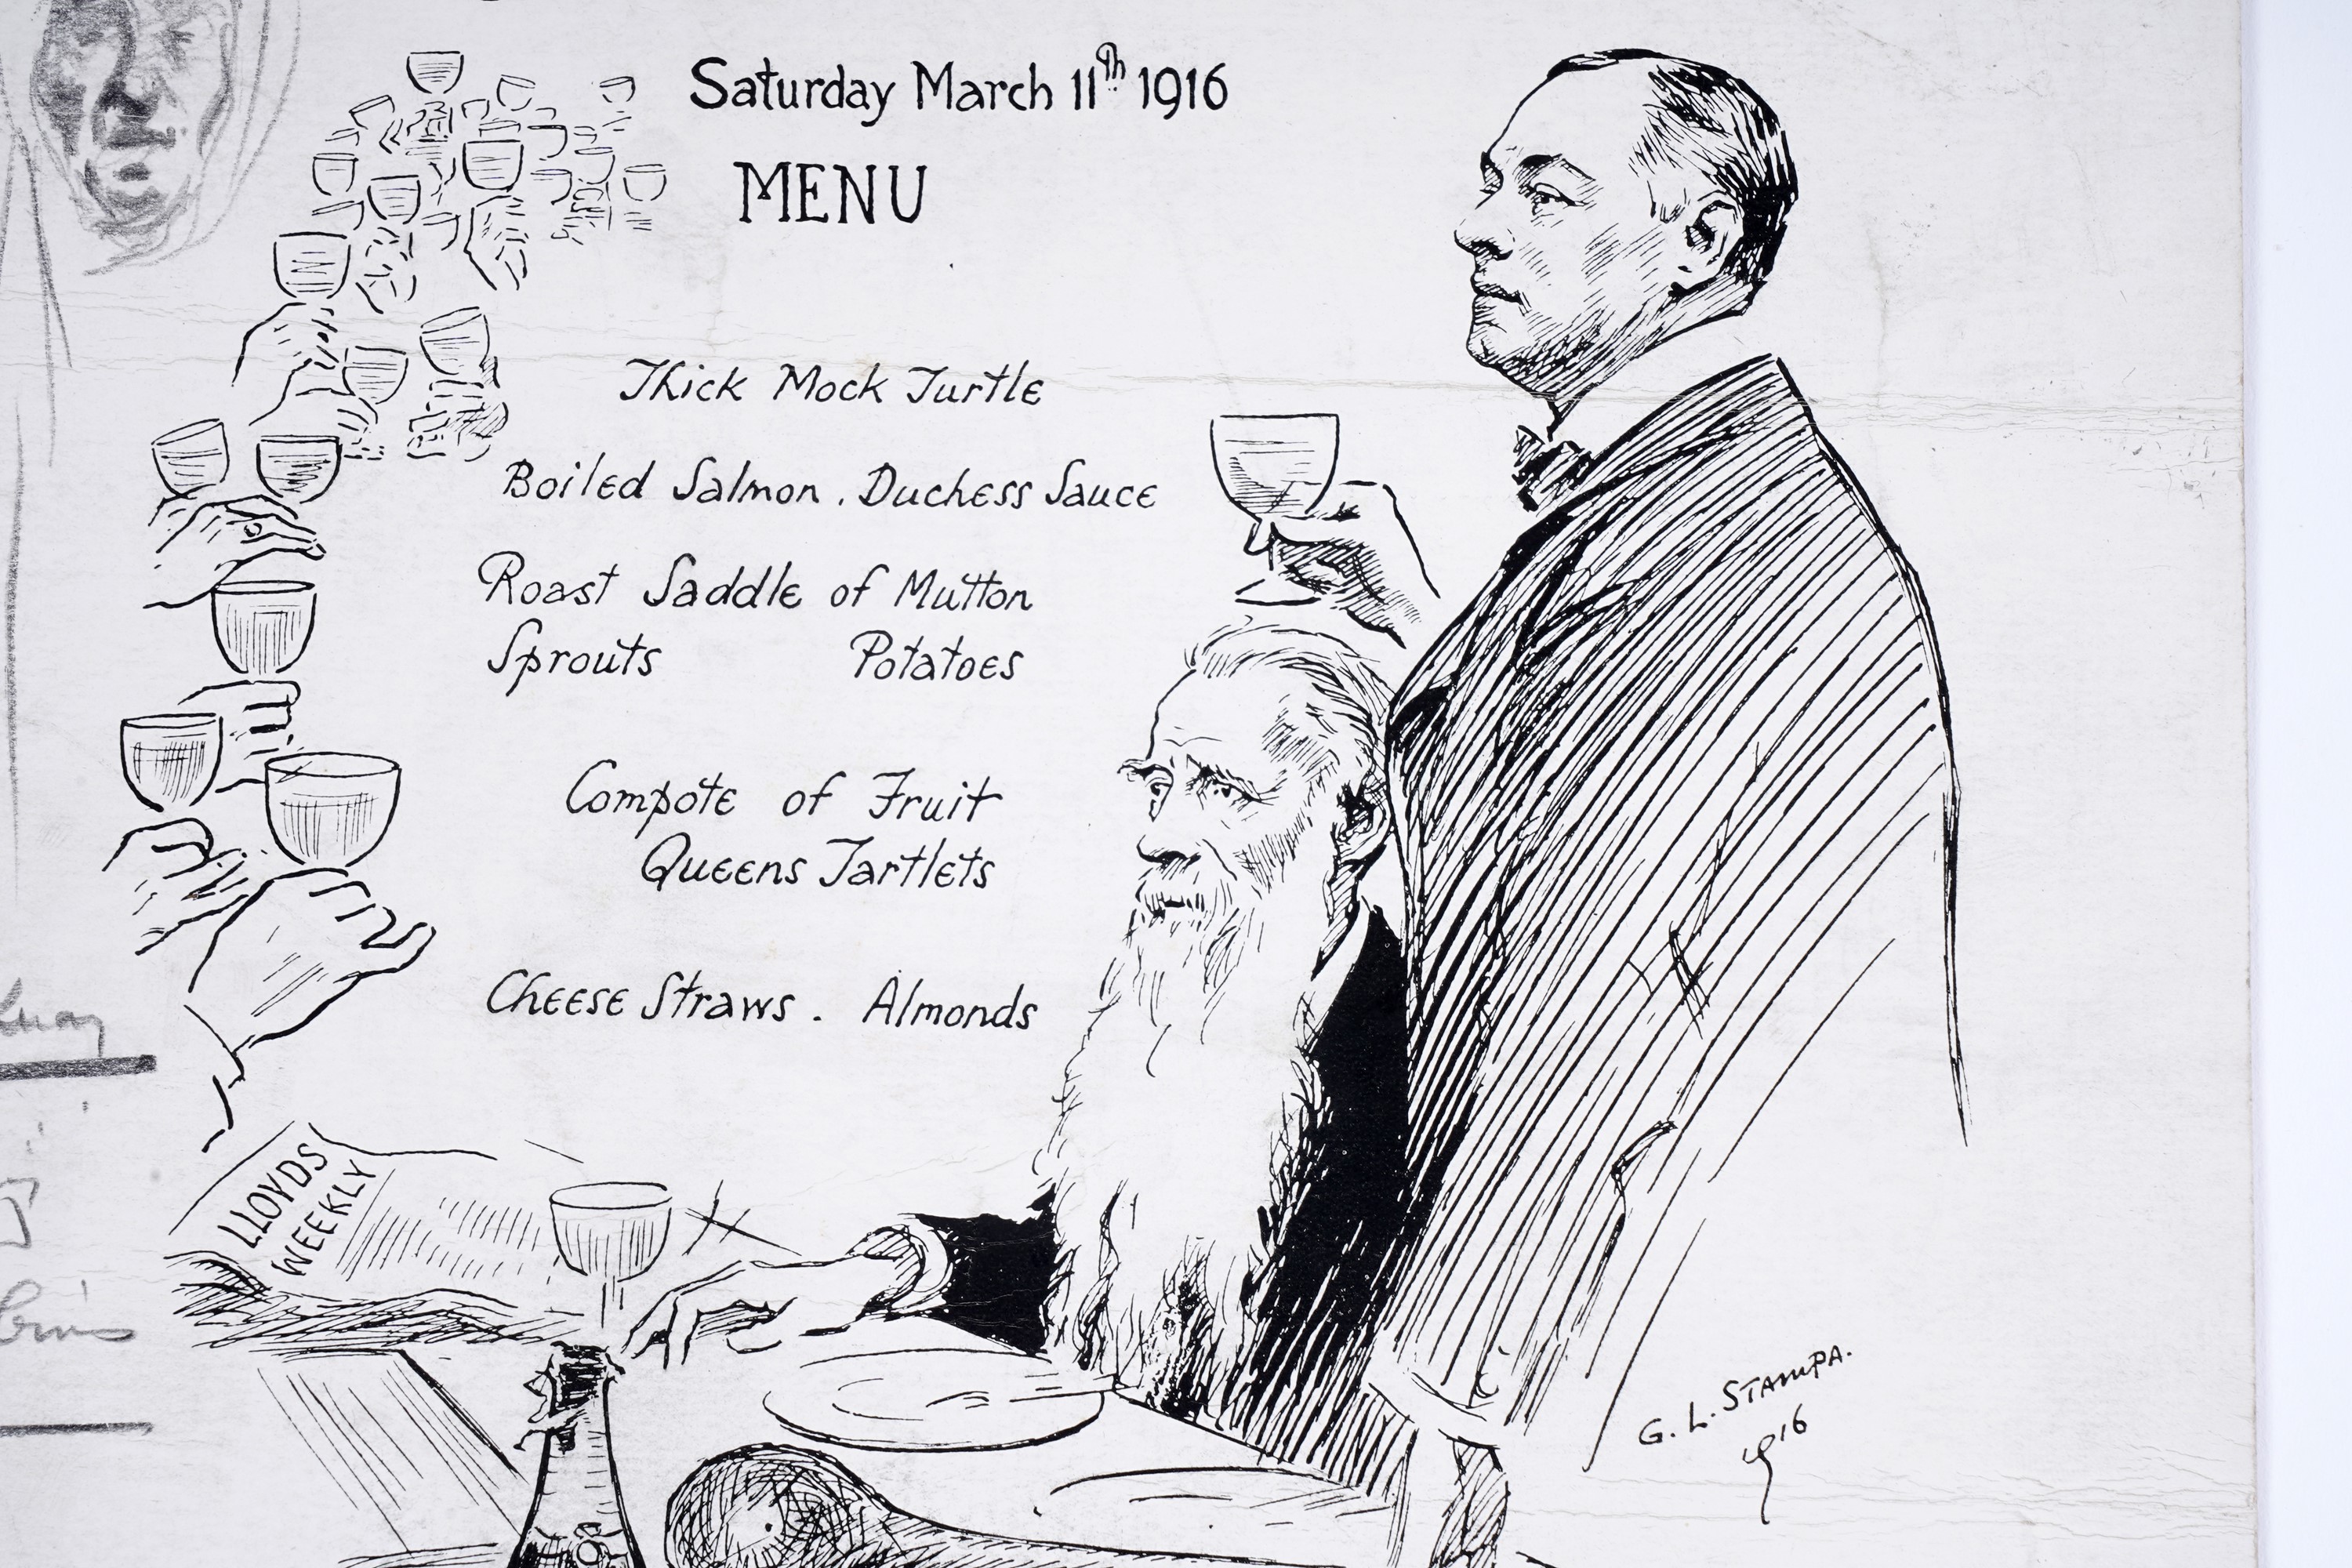 Saturday March 11th 1916
MENU
Thick Mock Turtle
Boiled Salmon . Duchess Sauce
Roast Saddle of Mutton
Sprouts Potatoes
Compote of Fruit
Queens Tartlets
Cheese Straws . Almonds
LLOYDS
WEEKLY
G. L. STAMPA.
1916